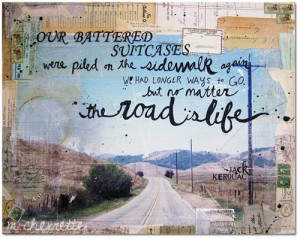 OUR BATTERED
SUITCASES
were piled on the sidewalk again
WE HAD LONGER WAYS to GO.
but no matter
the road is life
JACK
KEROUAC